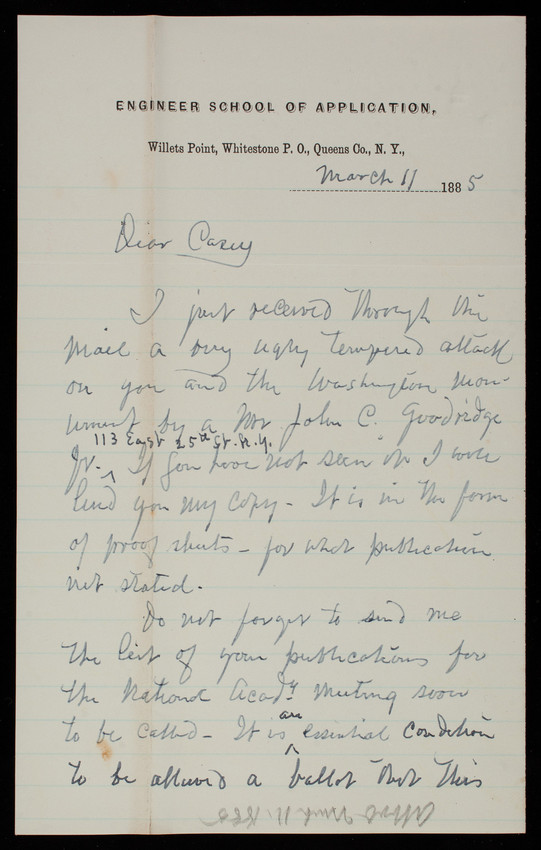 ENGINEER SCHOOL OF APPLICATION,
Willets Point, Whitestone P. O., Queens Co., N. Y.,
March 11 1885
Dear Casey
I just received through the
mail a very ugly tempered attack
on you and the Washington Mon-
ument by a Mr John C. Goodridge
113 East 25th St. N.Y.
Jr. ^ If you have not seen it I will
lend you my copy - It is in the form
of proof sheets - for what publication
not stated.
Do not forget to send me
the list of your publications for
the National Acady Meeting soon
an
to be called - It is ^ essential condition
to be allowed a ballot that this